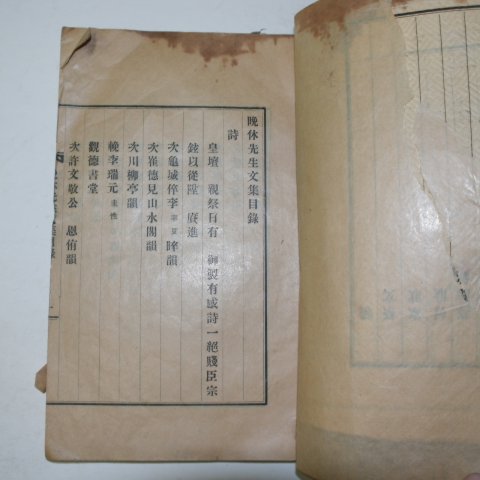 晩休先生文集目錄
詩
皇壇 親祭日有 御製有感詩一絕賤臣宗
鉉以從陞 庭進
次龜城倅李 韻
次崔德見山水閣韻
次川柳亭韻
輓李瑞元
觀德書堂
次許文敬公 恩侑韻